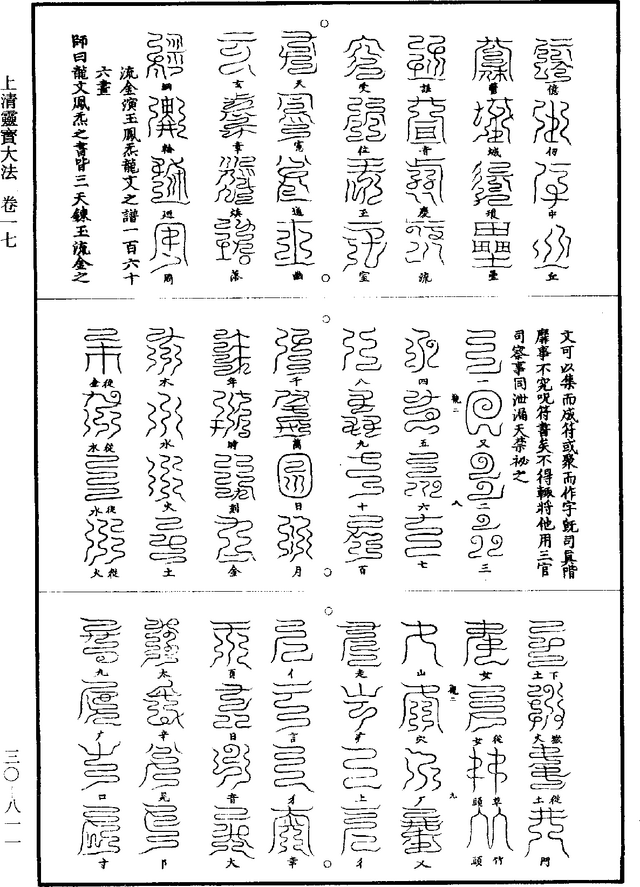 億 伯 中 丘
鬱 城 瑣 壘
誰 音 慶 流
受 位 玉 室
天 寬 道 幽
玄 章 煥 落
綱 輪 迴 周
流金演玉鳳炁龍文之譜一百六十
六畫
師曰龍文鳳炁之書皆三天鍊玉流金之
文可以集而成符或聚而作字既司真階
靡事不究呪符書矣不得輒將他用三官
司察事同泄漏天禁祕之
一 又 二 三
四 五 六 七
八 九 十 百
千 萬 日 月
年 時 刻 金
木 水 火 土
從金 從水 從水 從火
下土 從土 門
女 從女 草頭 竹頭
山 穴 厂 又
走 疒 上 彳
亻 言 才 章
頁 日 音 大
太 辛 見 阝
九 广 口 寸
上清靈寶大法 卷一七
三〇—八一一